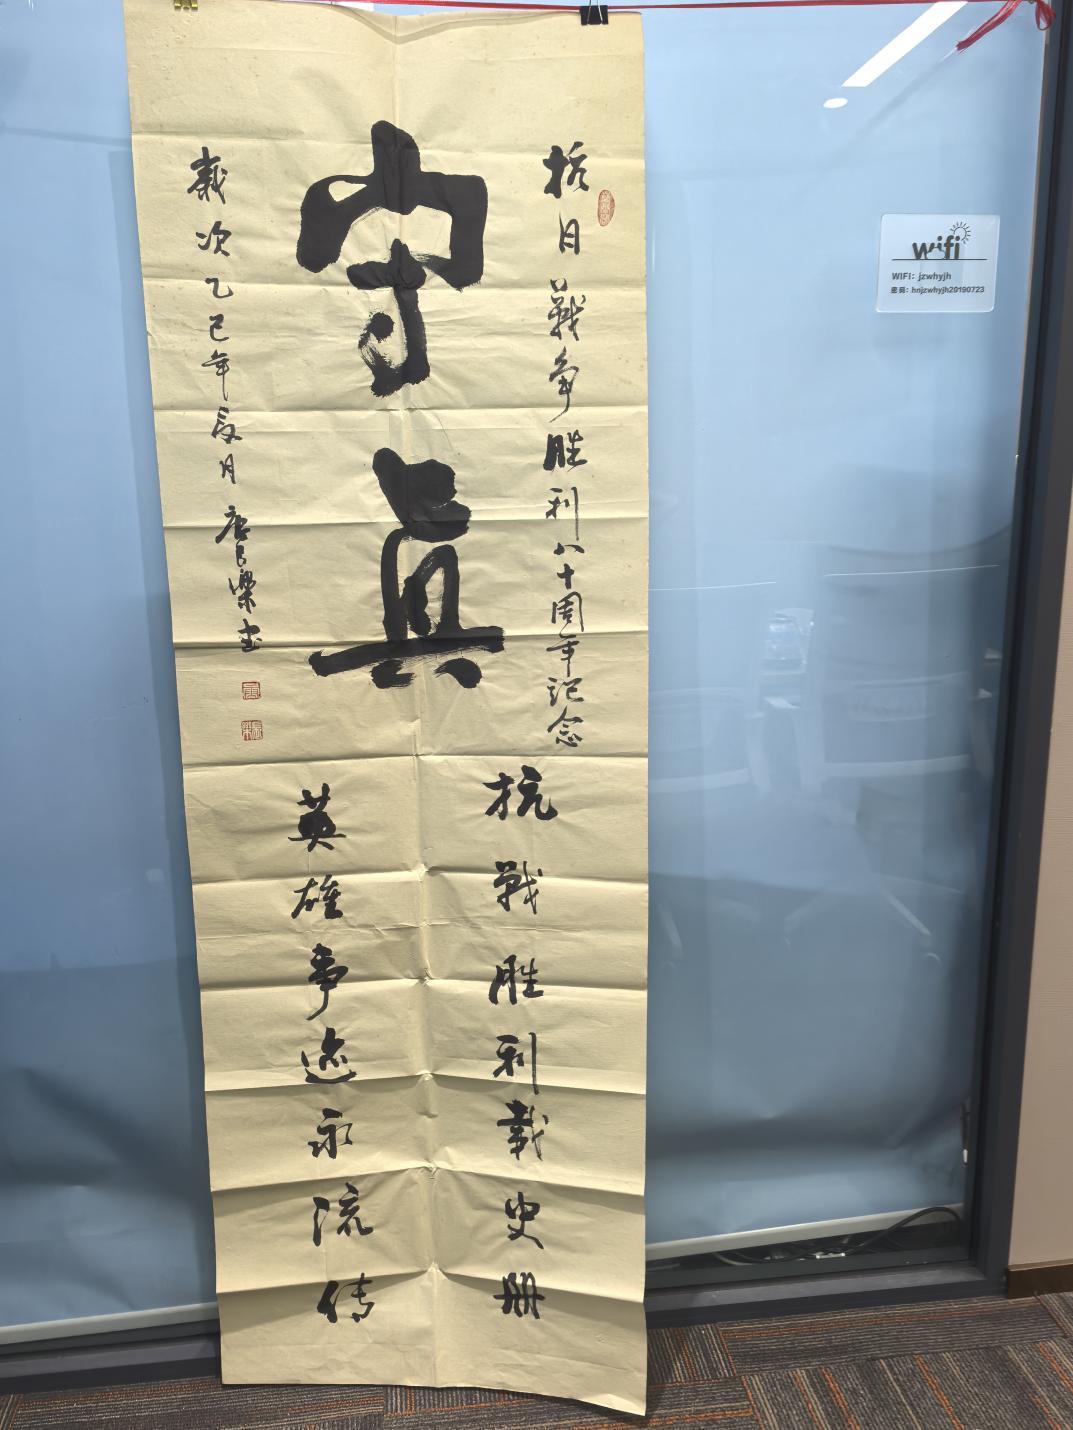 抗日战争胜利八十周年记念
守真
歳次乙巳年辰月唐良樂书
抗战胜利载史册
英雄事迹永流传
wifi
WIFI: jzwhyjh
密码: hnjzwhyjh20190723